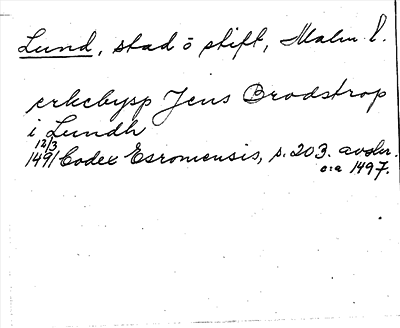 Lund, stad o stift, Malm. l.
erkebysp Jens Brodstrop
i Lundh
12/3
1491 Codex Esromensis, s. 203. avskr.
c:a 1497.